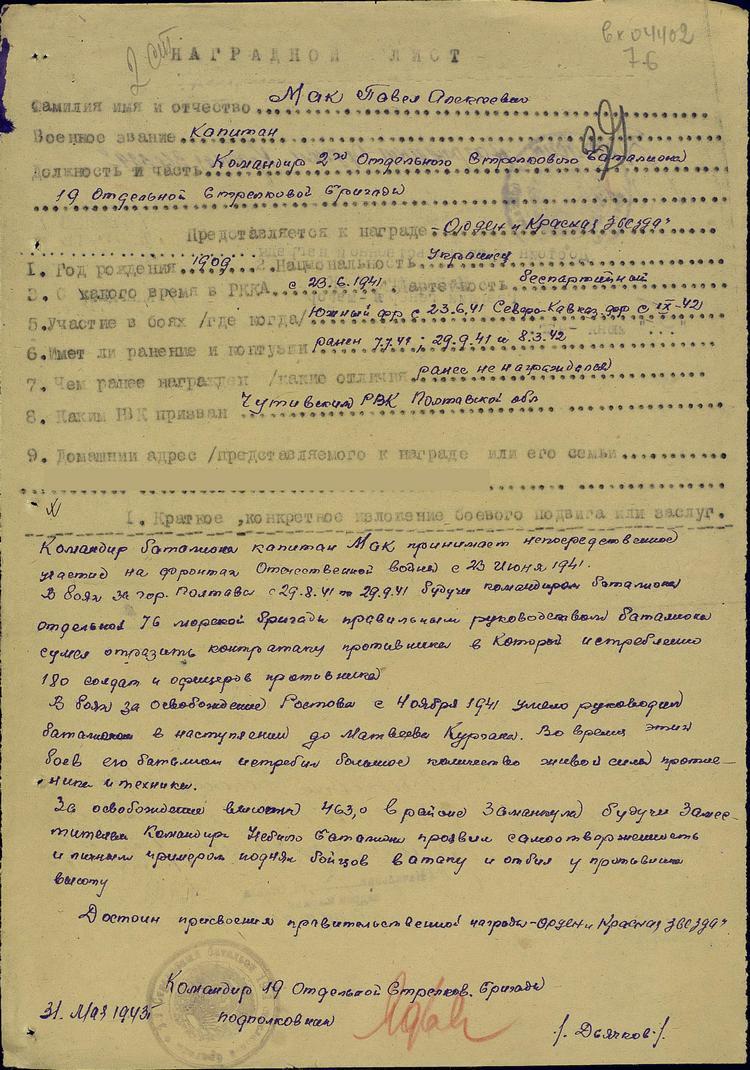 вх 04402
2 от
76
НАГРАДНОЙ ЛИСТ
Фамилия имя и отчество Мак Павел Алексеевич
Военное звание Капитан
Должность и часть Командир 2го Отдельного Стрелкового Баталиона
19 Отдельной Стрелковой Бригады
Представляется к награде - Орден „Красная звезда"
1. Год рождения 1909 2. Национальность Украинец
3. С какого время в РККА с 23.6.1941. Партейность беспартейный
5. Участие в боях /где когда/ Южный фр с 23.6.41 Северо-Кавказ.фр с IX-42
6. Имет ли ранение и контузии ранен 7.7.41; 29.9.41 и 8.3.42
7. Чем ранее награжден /какие отличия ранее не награждался
8. Каким РВК призван Чутивским РВК Полтавской обл
9. Домашнии адрес /представляемого к награде или его семьи
1. Краткое, конкретное изложение боевого подвига или заслуг.
Командир баталиона капитан Мак принимает непосредственное
участие на фронтах Отечественной войны с 23 Июня 1941.
В боях за гор. Полтава с 29.8.41 по 29.9.41 будучи командиром баталиона
отдельной 76 морской бригады правильным руководством баталиона
сумел отразить контратаку противника в которой истреблено
180 солдат и офицеров противника
В боях за освобождение Ростова с 4 ноября 1941 умело руководил
баталионом в наступлении до Матвеева Кургана. Во время этих
боев его батальон истребил большое количество живой силы против-
ника и техники.
За освобождение высоты 463,0 в районе Заманкула будучи Замес-
тителем Командира Учебного Баталиона проявил самоотверженность
и личным примером поднял бойцов в атаку и отбил у противника
высоту
Достоин присвоения правительственной награды - Орден „Красная звезда"
Командир 19 Отдельной Стрелков. Бригады
31. Мая 1943г подполковник /. Дьячков./